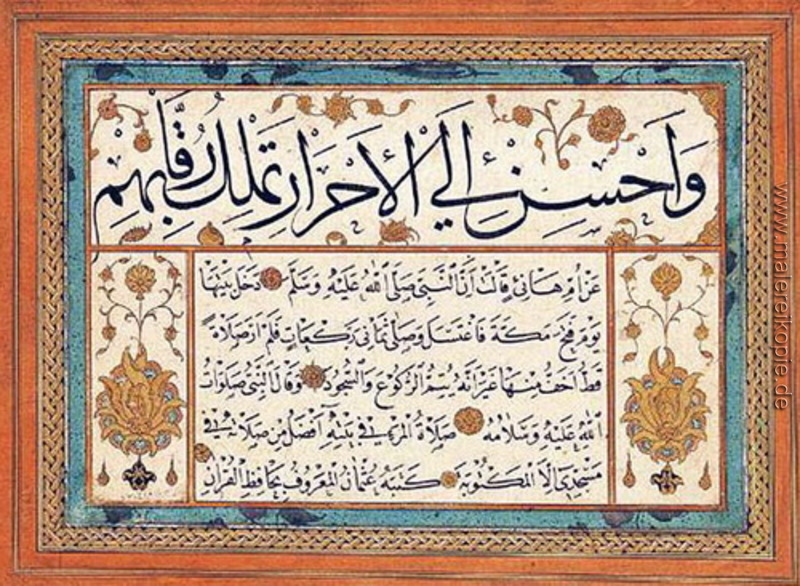 وَاَحْسِنْ اِلَي الْاَحْرَارِ تَمْلِكْ رِقَابَهُمْ
عن ام هانئ قالت ان النبي صلى الله عليه وسلم دخل بيتها
يوم فتح مكة فاغتسل وصلى ثماني ركعات فلم ار صلاة
قط اخف منها غير انه يتم الركوع والسجود وقال النبي صلوات
الله عليه وسلامه صلاة المرء في بيته افضل من صلاته في
مسجدي الا المكتوبة كتبه عثمان المعروف بحافظ القرآن
www.malereikopie.de